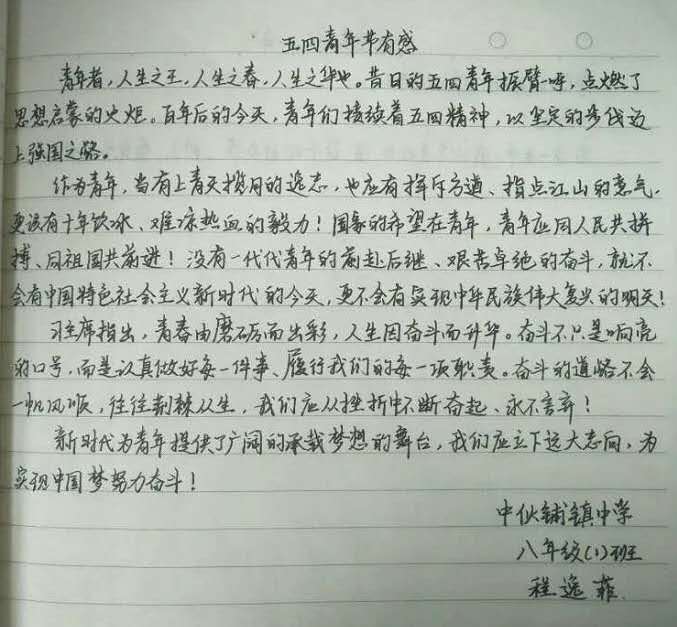 五四青年节有感
青年者，人生之王，人生之春，人生之华也。昔日的五四青年振臂一呼，点燃了
思想启蒙的火炬。百年后的今天，青年们接续着五四精神，以坚定的步伐迈
上强国之路。
作为青年，当有上青天揽月的逸志，也应有挥斥方遒、指点江山的意气，
更该有十年饮冰、难凉热血的毅力！国家的希望在青年，青年应同人民共拼
搏、同祖国共前进！没有一代代青年的前赴后继、艰苦卓绝的奋斗，就不
会有中国特色社会主义新时代的今天，更不会有实现中华民族伟大复兴的明天！
习主席指出，青春由磨砺而出彩，人生因奋斗而升华。奋斗不只是响亮
的口号，而是认真做好每一件事、履行我们的每一项职责。奋斗的道路不会
一帆风顺，往往荆棘从生，我们应从挫折中不断奋起、永不言弃！
新时代为青年提供了广阔的承载梦想的舞台，我们应立下远大志向，为
实现中国梦努力奋斗！
中伙铺镇中学
八年级(1)班
程逸菲